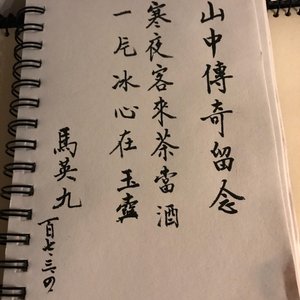 山中傳奇留念
寒夜客來茶當酒
一片冰心在玉壺
馬英九
百七、三、四